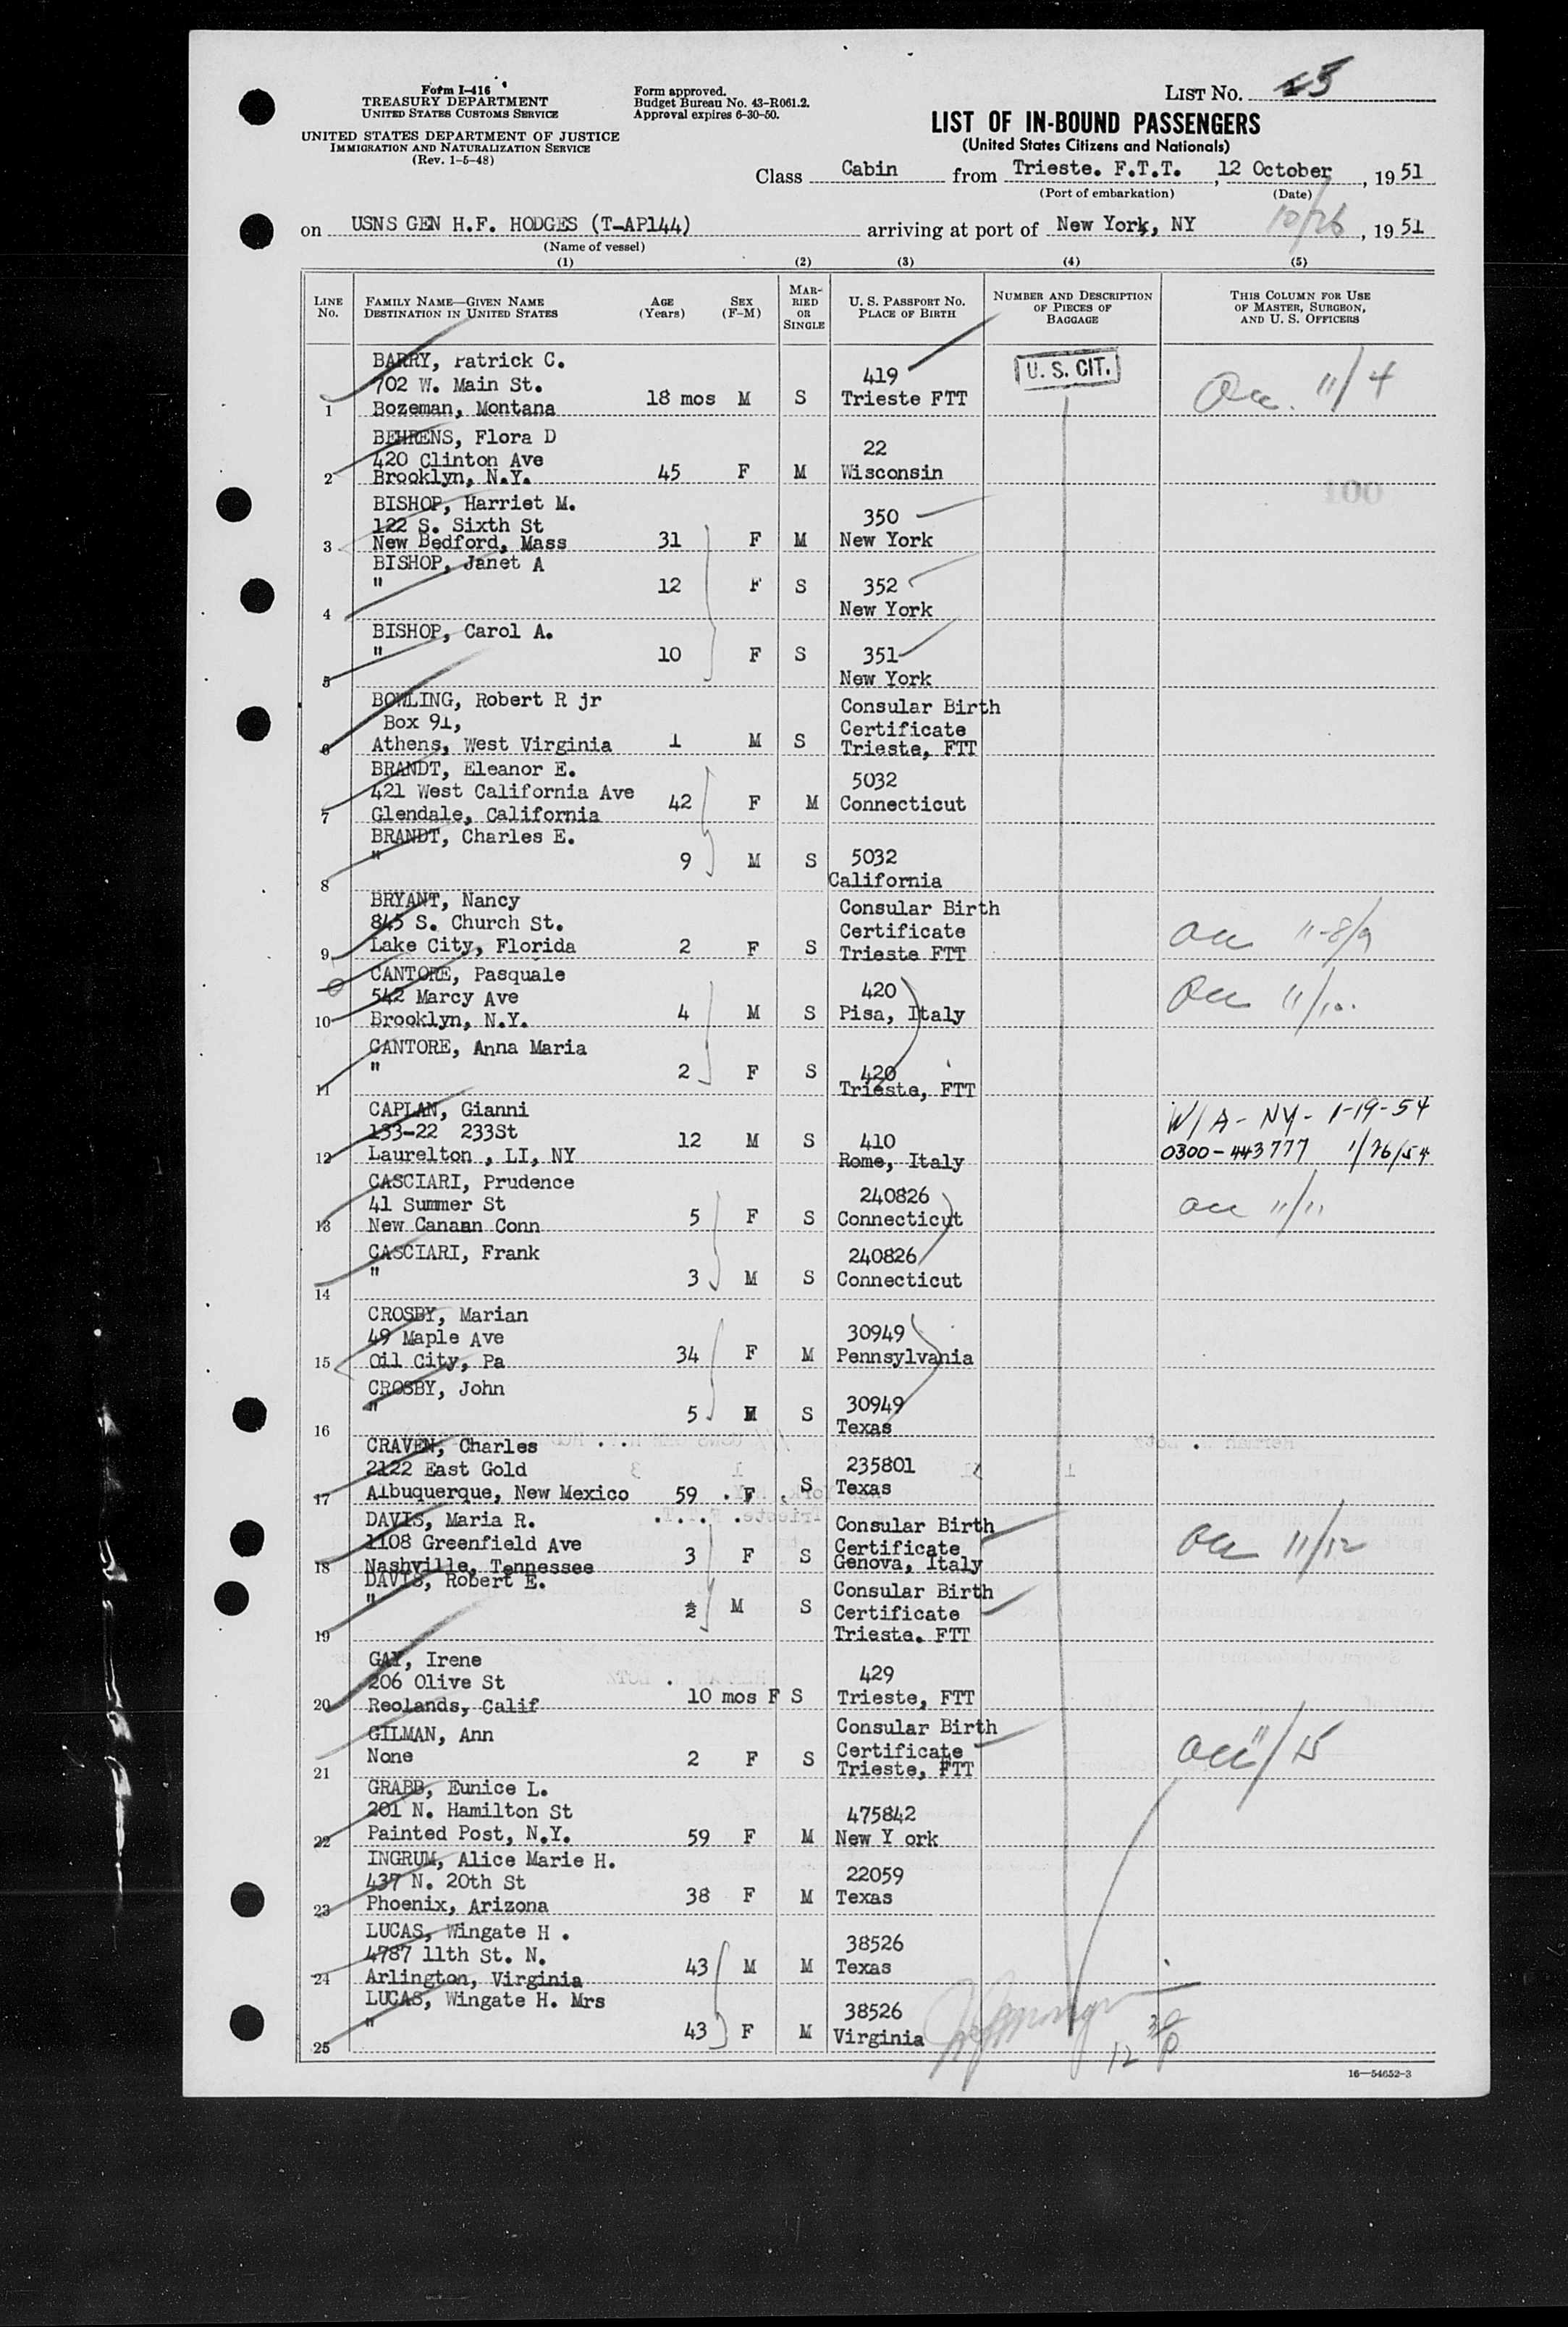 Form I-416
TREASURY DEPARTMENT
UNITED STATES CUSTOMS SERVICE
UNITED STATES DEPARTMENT OF JUSTICE
IMMIGRATION AND NATURALIZATION SERVICE
(Rev. 1-5-48)
Form approved.
Budget Bureau No. 43-R061.2.
Approval expires 6-30-50.
LIST No.
LIST OF IN-BOUND PASSENGERS
(United States Citizens and Nationals)
Class Cabin from Trieste. F.T.T. , 12 October , 19 51
(Port of embarkation) (Date)
on USNS GEN H.F. HODGES (T-AP144) arriving at port of New York, NY 10/26 , 19 51
(Name of vessel)
(1) (2) (3) (4) (5)
LINE No. FAMILY NAME—GIVEN NAME DESTINATION IN UNITED STATES AGE (Years) SEX (F-M) MARRIED OR SINGLE U. S. PASSPORT No. PLACE OF BIRTH NUMBER AND DESCRIPTION OF PIECES OF BAGGAGE THIS COLUMN FOR USE OF MASTER, SURGEON, AND U. S. OFFICERS
BARRY, Patrick C.
702 W. Main St. 419 U. S. CIT. 11/4
1 Bozeman, Montana 18 mos M S Trieste FTT
BEHRENS, Flora D
420 Clinton Ave 22
2 Brooklyn, N.Y. 45 F M Wisconsin
100
BISHOP, Harriet M.
122 S. Sixth St 350
3 New Bedford, Mass 31 F M New York
BISHOP, Janet A
" 12 F S 352
4 New York
BISHOP, Carol A.
" 10 F S 351
5 New York
BOWLING, Robert R jr Consular Birth
Box 91, Certificate
6 Athens, West Virginia 1 M S Trieste, FTT
BRANDT, Eleanor E. 5032
421 West California Ave 42 F M Connecticut
7 Glendale, California
BRANDT, Charles E.
" 9 M S 5032
8 California
BRYANT, Nancy Consular Birth
845 S. Church St. Certificate 11-8/9
9 Lake City, Florida 2 F S Trieste FTT
CANTORE, Pasquale 420
542 Marcy Ave 4 M S Pisa, Italy 11/10
10 Brooklyn, N.Y.
CANTORE, Anna Maria
" 2 F S 420
11 Trieste, FTT
CAPLAN, Gianni W/A - NY - 1-19-54
133-22 233St 12 M S 410
12 Laurelton , LI, NY Rome, Italy 0300-443777 1/26/54
CASCIARI, Prudence 240826
41 Summer St 5 F S Connecticut 11/11
13 New Canaan Conn
CASCIARI, Frank 240826
" 3 M S Connecticut
14
CROSBY, Marian 30949
49 Maple Ave 34 F M Pennsylvania
15 Oil City, Pa
CROSBY, John 30949
" 5 M S Texas
16
CRAVEN, Charles 235801
2122 East Gold S Texas
17 Albuquerque, New Mexico 59 F
DAVIS, Maria R. Consular Birth
1108 Greenfield Ave 3 F S Certificate 11/12
18 Nashville, Tennessee Genova, Italy
DAVIS, Robert E. Consular Birth
" 2 M S Certificate
19 Trieste. FTT
GAY, Irene 429
206 Olive St
20 Reolands, Calif 10 mos F S Trieste, FTT
GILMAN, Ann Consular Birth
None 2 F S Certificate 11/15
21 Trieste, FTT
GRABB, Eunice L.
201 N. Hamilton St 475842
22 Painted Post, N.Y. 59 F M New Y ork
INGRUM, Alice Marie H.
437 N. 20th St 22059
23 Phoenix, Arizona 38 F M Texas
LUCAS, Wingate H .
4787 11th St. N. 38526
24 Arlington, Virginia 43 M M Texas
LUCAS, Wingate H. Mrs 38526
" 43 F M Virginia
25
12
16—54652-3